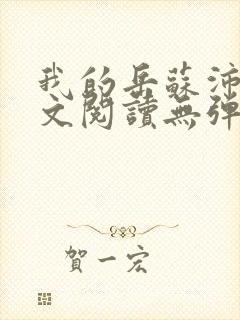 我的岳蘇沛
文閱讀無彈
賀一宏